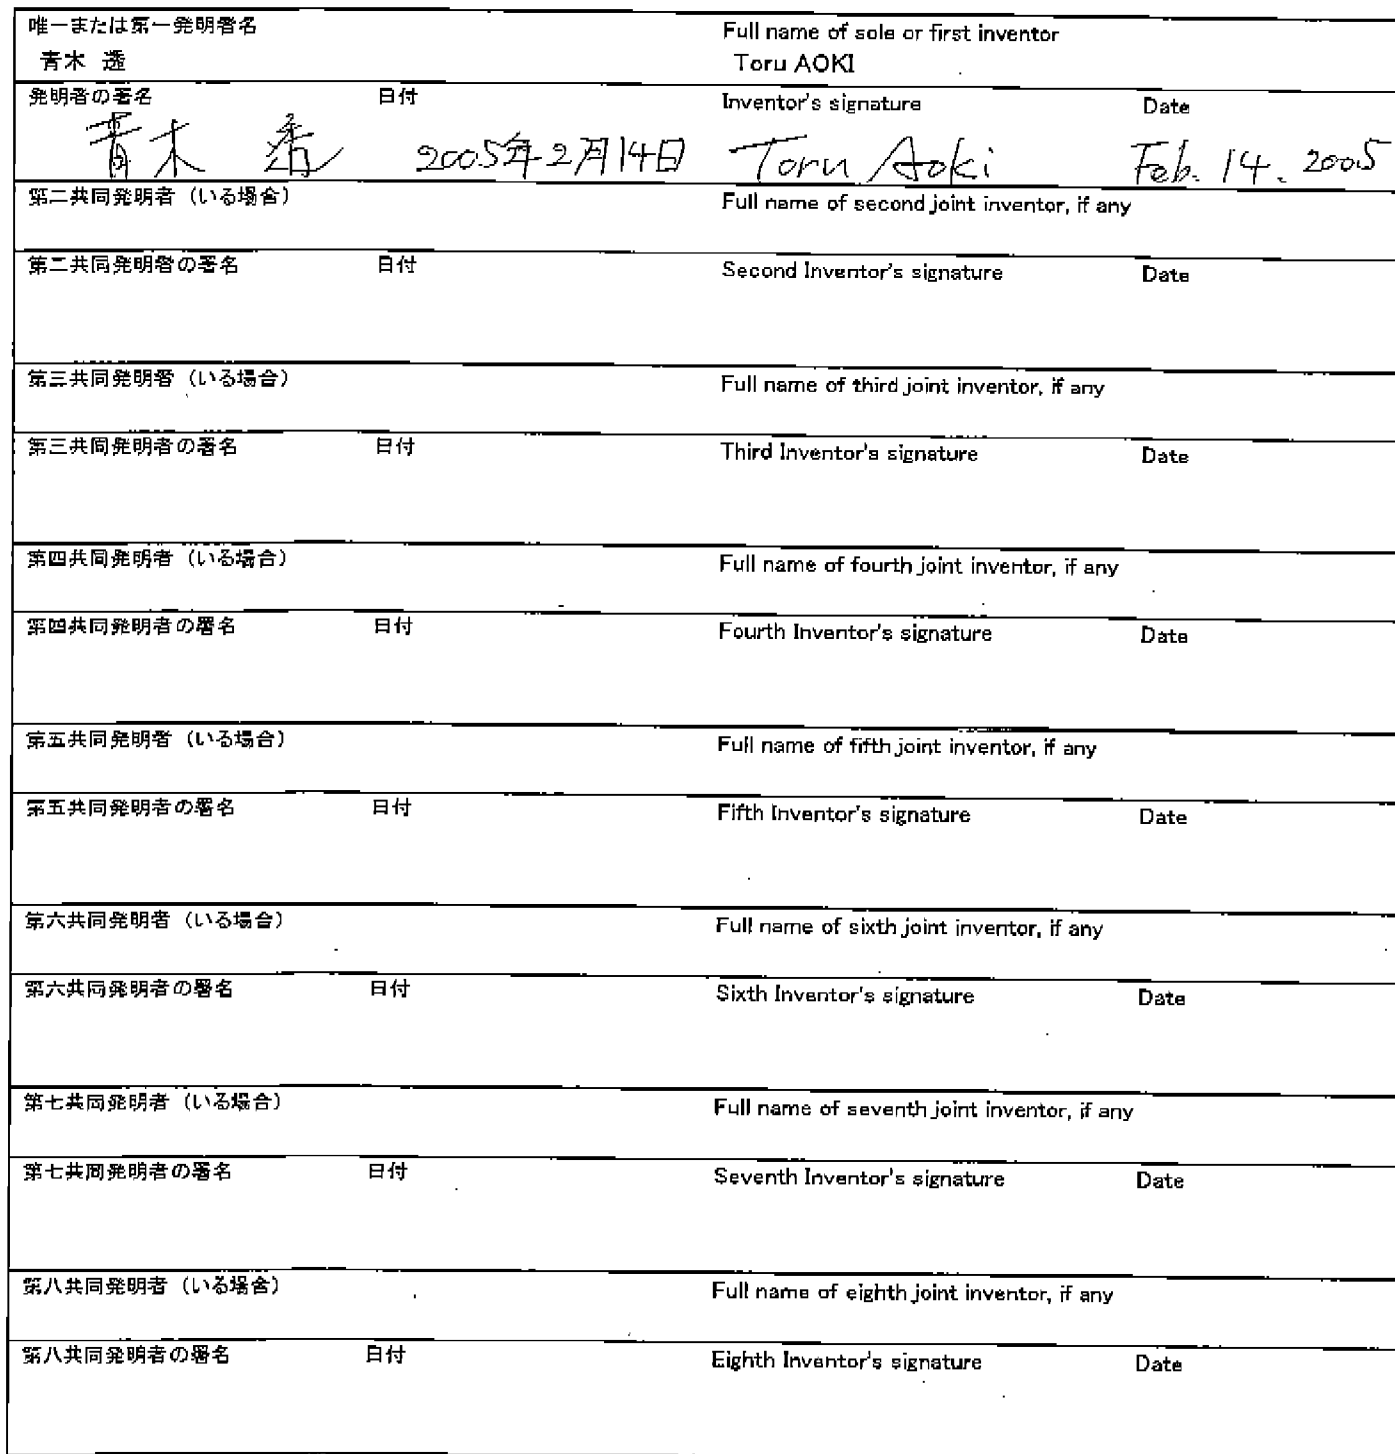 唯一または第一発明者名 Full name of sole or first inventor
青木 透 Toru AOKI
発明者の署名 日付 Inventor's signature Date
青木 透 2005年2月14日 Toru Aoki Feb. 14. 2005
第二共同発明者（いる場合） Full name of second joint inventor, if any
第二共同発明者の署名 日付 Second Inventor's signature Date
第三共同発明者（いる場合） Full name of third joint inventor, if any
第三共同発明者の署名 日付 Third Inventor's signature Date
第四共同発明者（いる場合） Full name of fourth joint inventor, if any
第四共同発明者の署名 日付 Fourth Inventor's signature Date
第五共同発明者（いる場合） Full name of fifth joint inventor, if any
第五共同発明者の署名 日付 Fifth Inventor's signature Date
第六共同発明者（いる場合） Full name of sixth joint inventor, if any
第六共同発明者の署名 日付 Sixth Inventor's signature Date
第七共同発明者（いる場合） Full name of seventh joint inventor, if any
第七共同発明者の署名 日付 Seventh Inventor's signature Date
第八共同発明者（いる場合） Full name of eighth joint inventor, if any
第八共同発明者の署名 日付 Eighth Inventor's signature Date